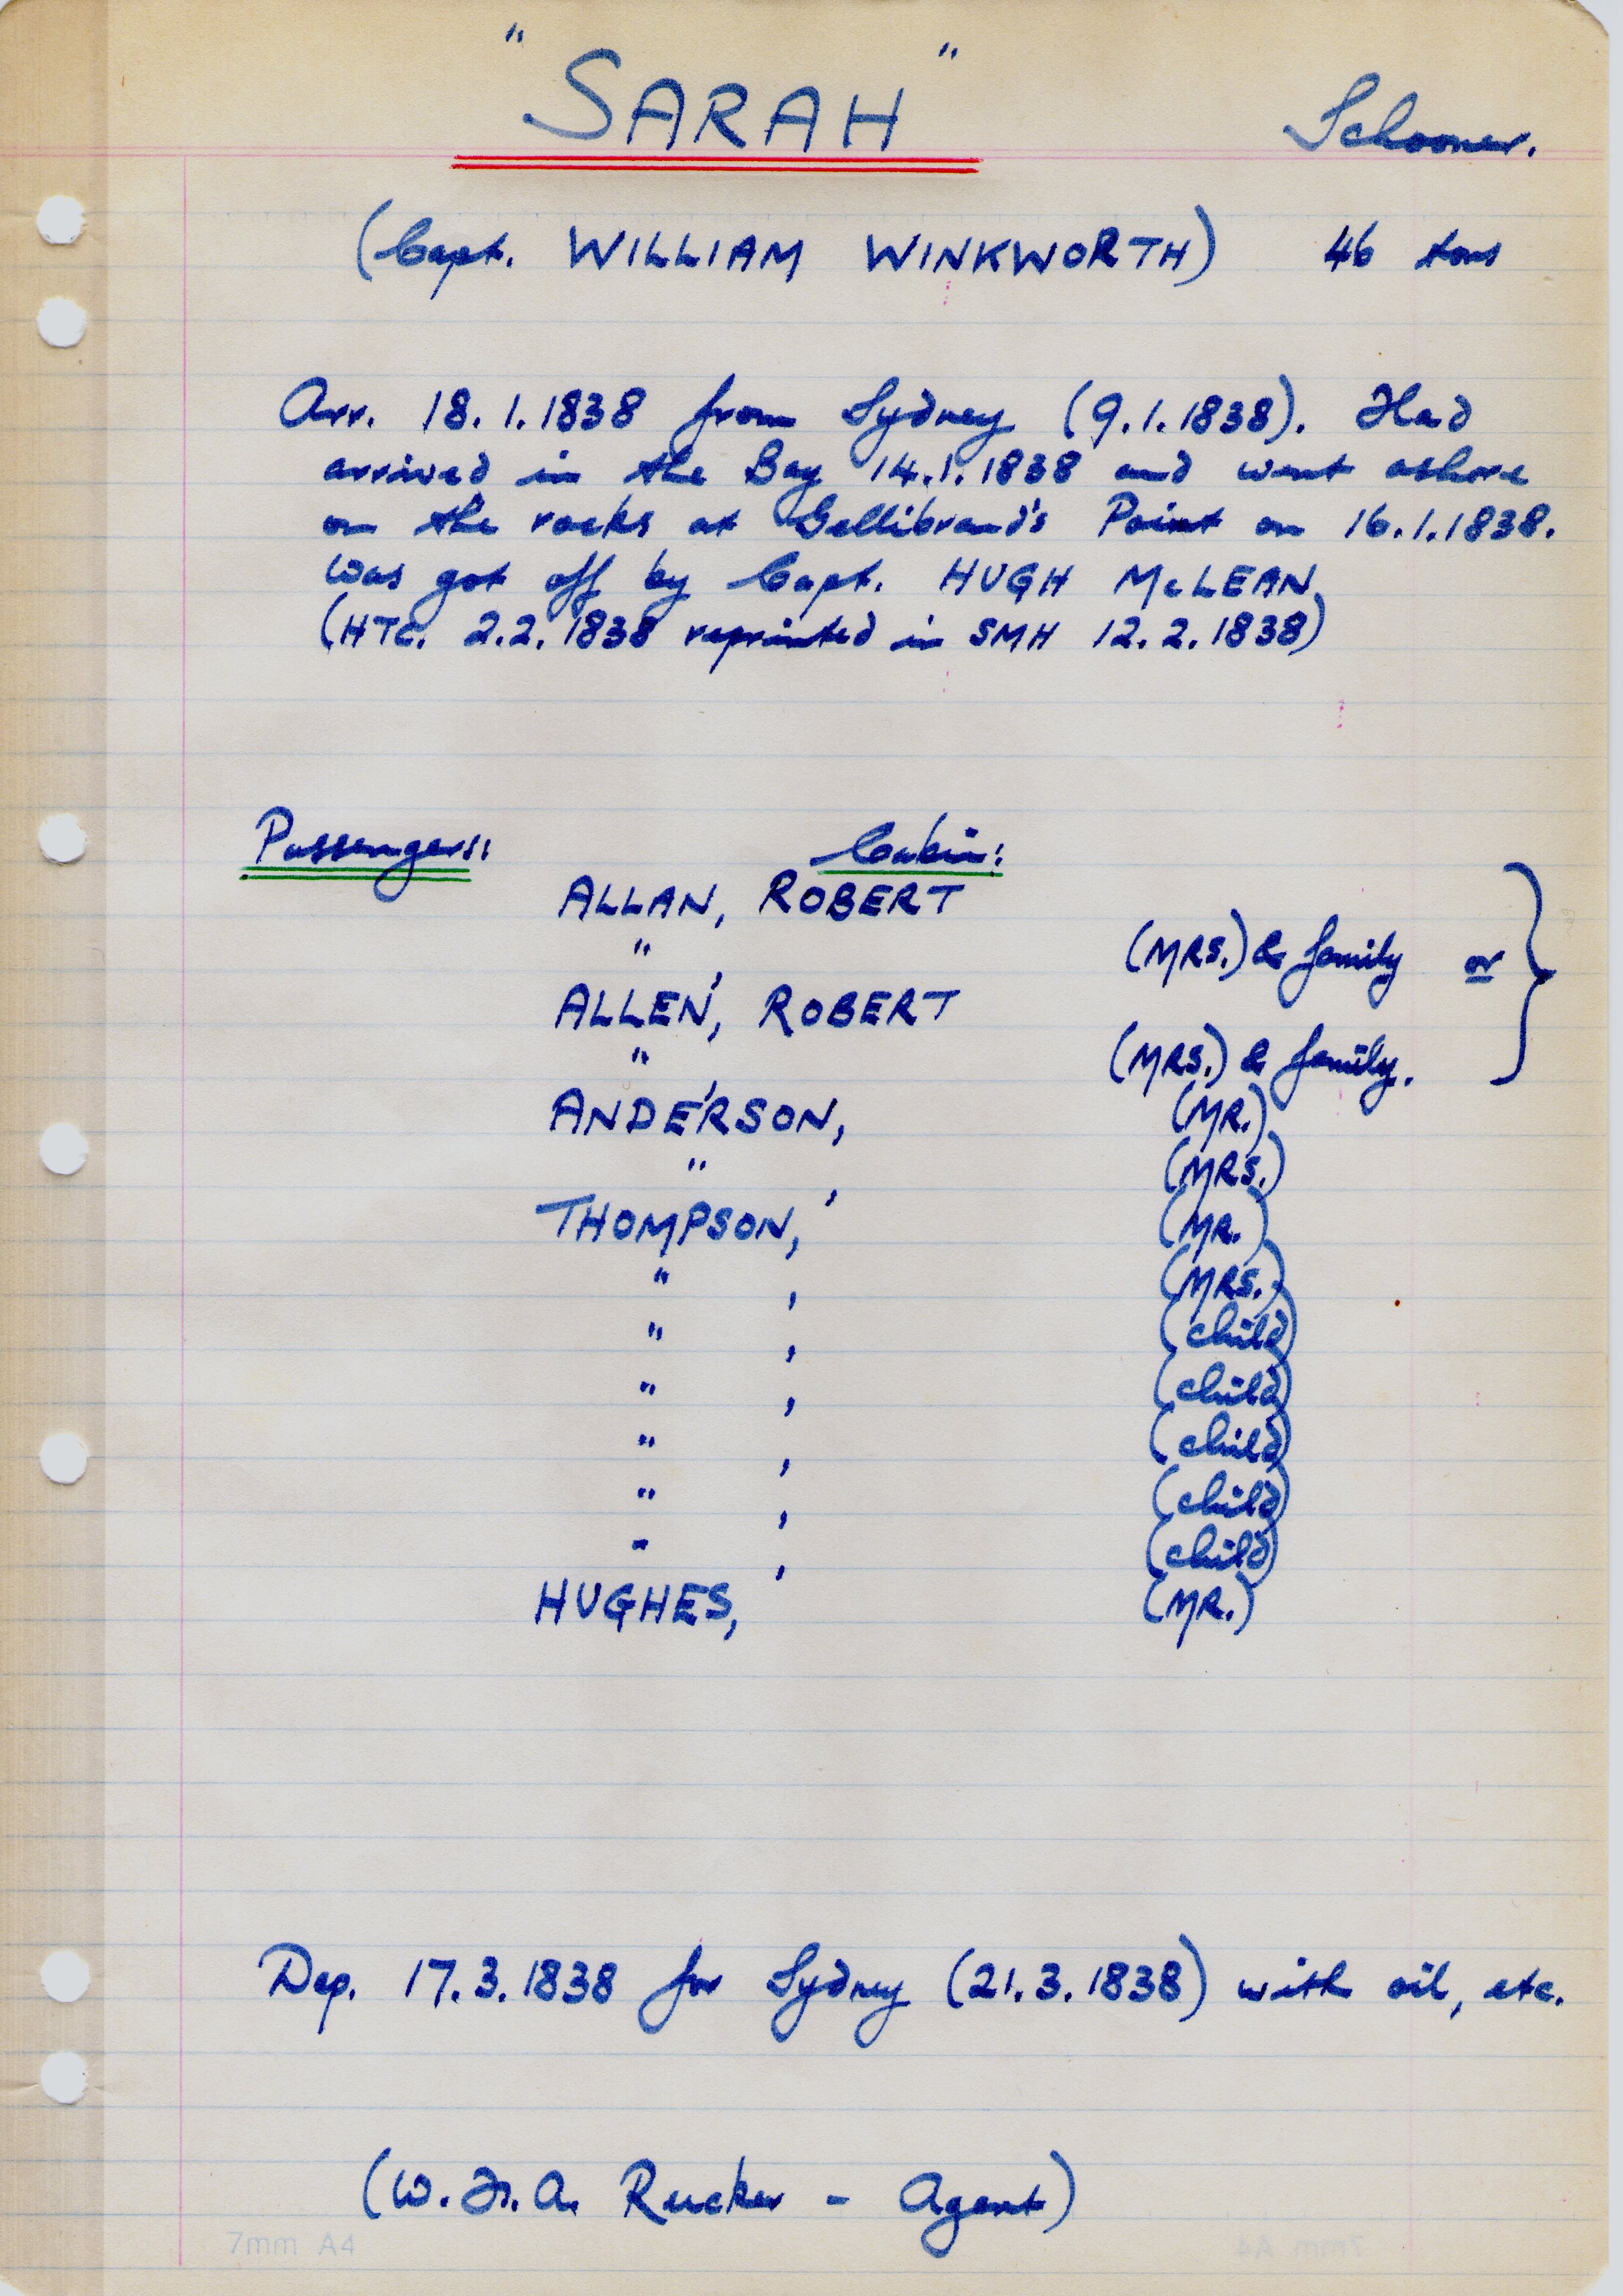 "SARAH" Schooner.
(Capt. WILLIAM WINKWORTH) 46 tons
Arr. 18.1.1838 from Sydney (9.1.1838). Had
arrived in the Bay 14.1.1838 and went ashore
on the rocks at Gellibrand's Point on 16.1.1838.
Was got off by Capt. HUGH McLEAN.
(HTC. 2.2.1838 reprinted in SMH 12.2.1838)
Passengers: Cabin:
ALLAN, ROBERT
" , (MRS.) & family or }
ALLEN, ROBERT
" , (MRS.) & family.
ANDERSON, (MR.)
" , (MRS.)
THOMPSON, (MR.)
" , (MRS.)
" , (child)
" , (child)
" , (child)
" , (child)
" , (child)
HUGHES, (MR.)
Dep. 17.3.1838 for Sydney (21.3.1838) with oil, etc.
(W. F. A. Rucker - Agent)
7mm A4